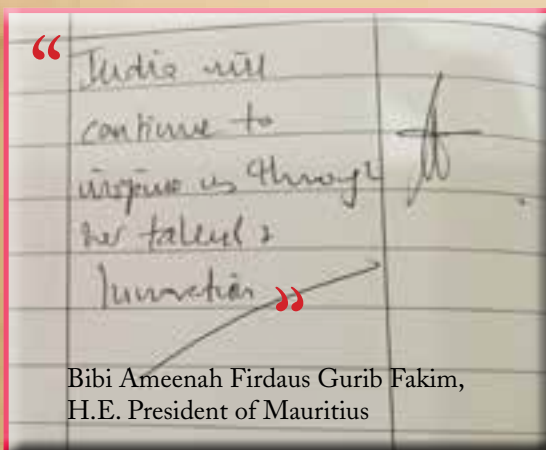 “ India will
continue to
inspire us through
her talent &
Innovation ”
Bibi Ameenah Firdaus Gurib Fakim,
H.E. President of Mauritius